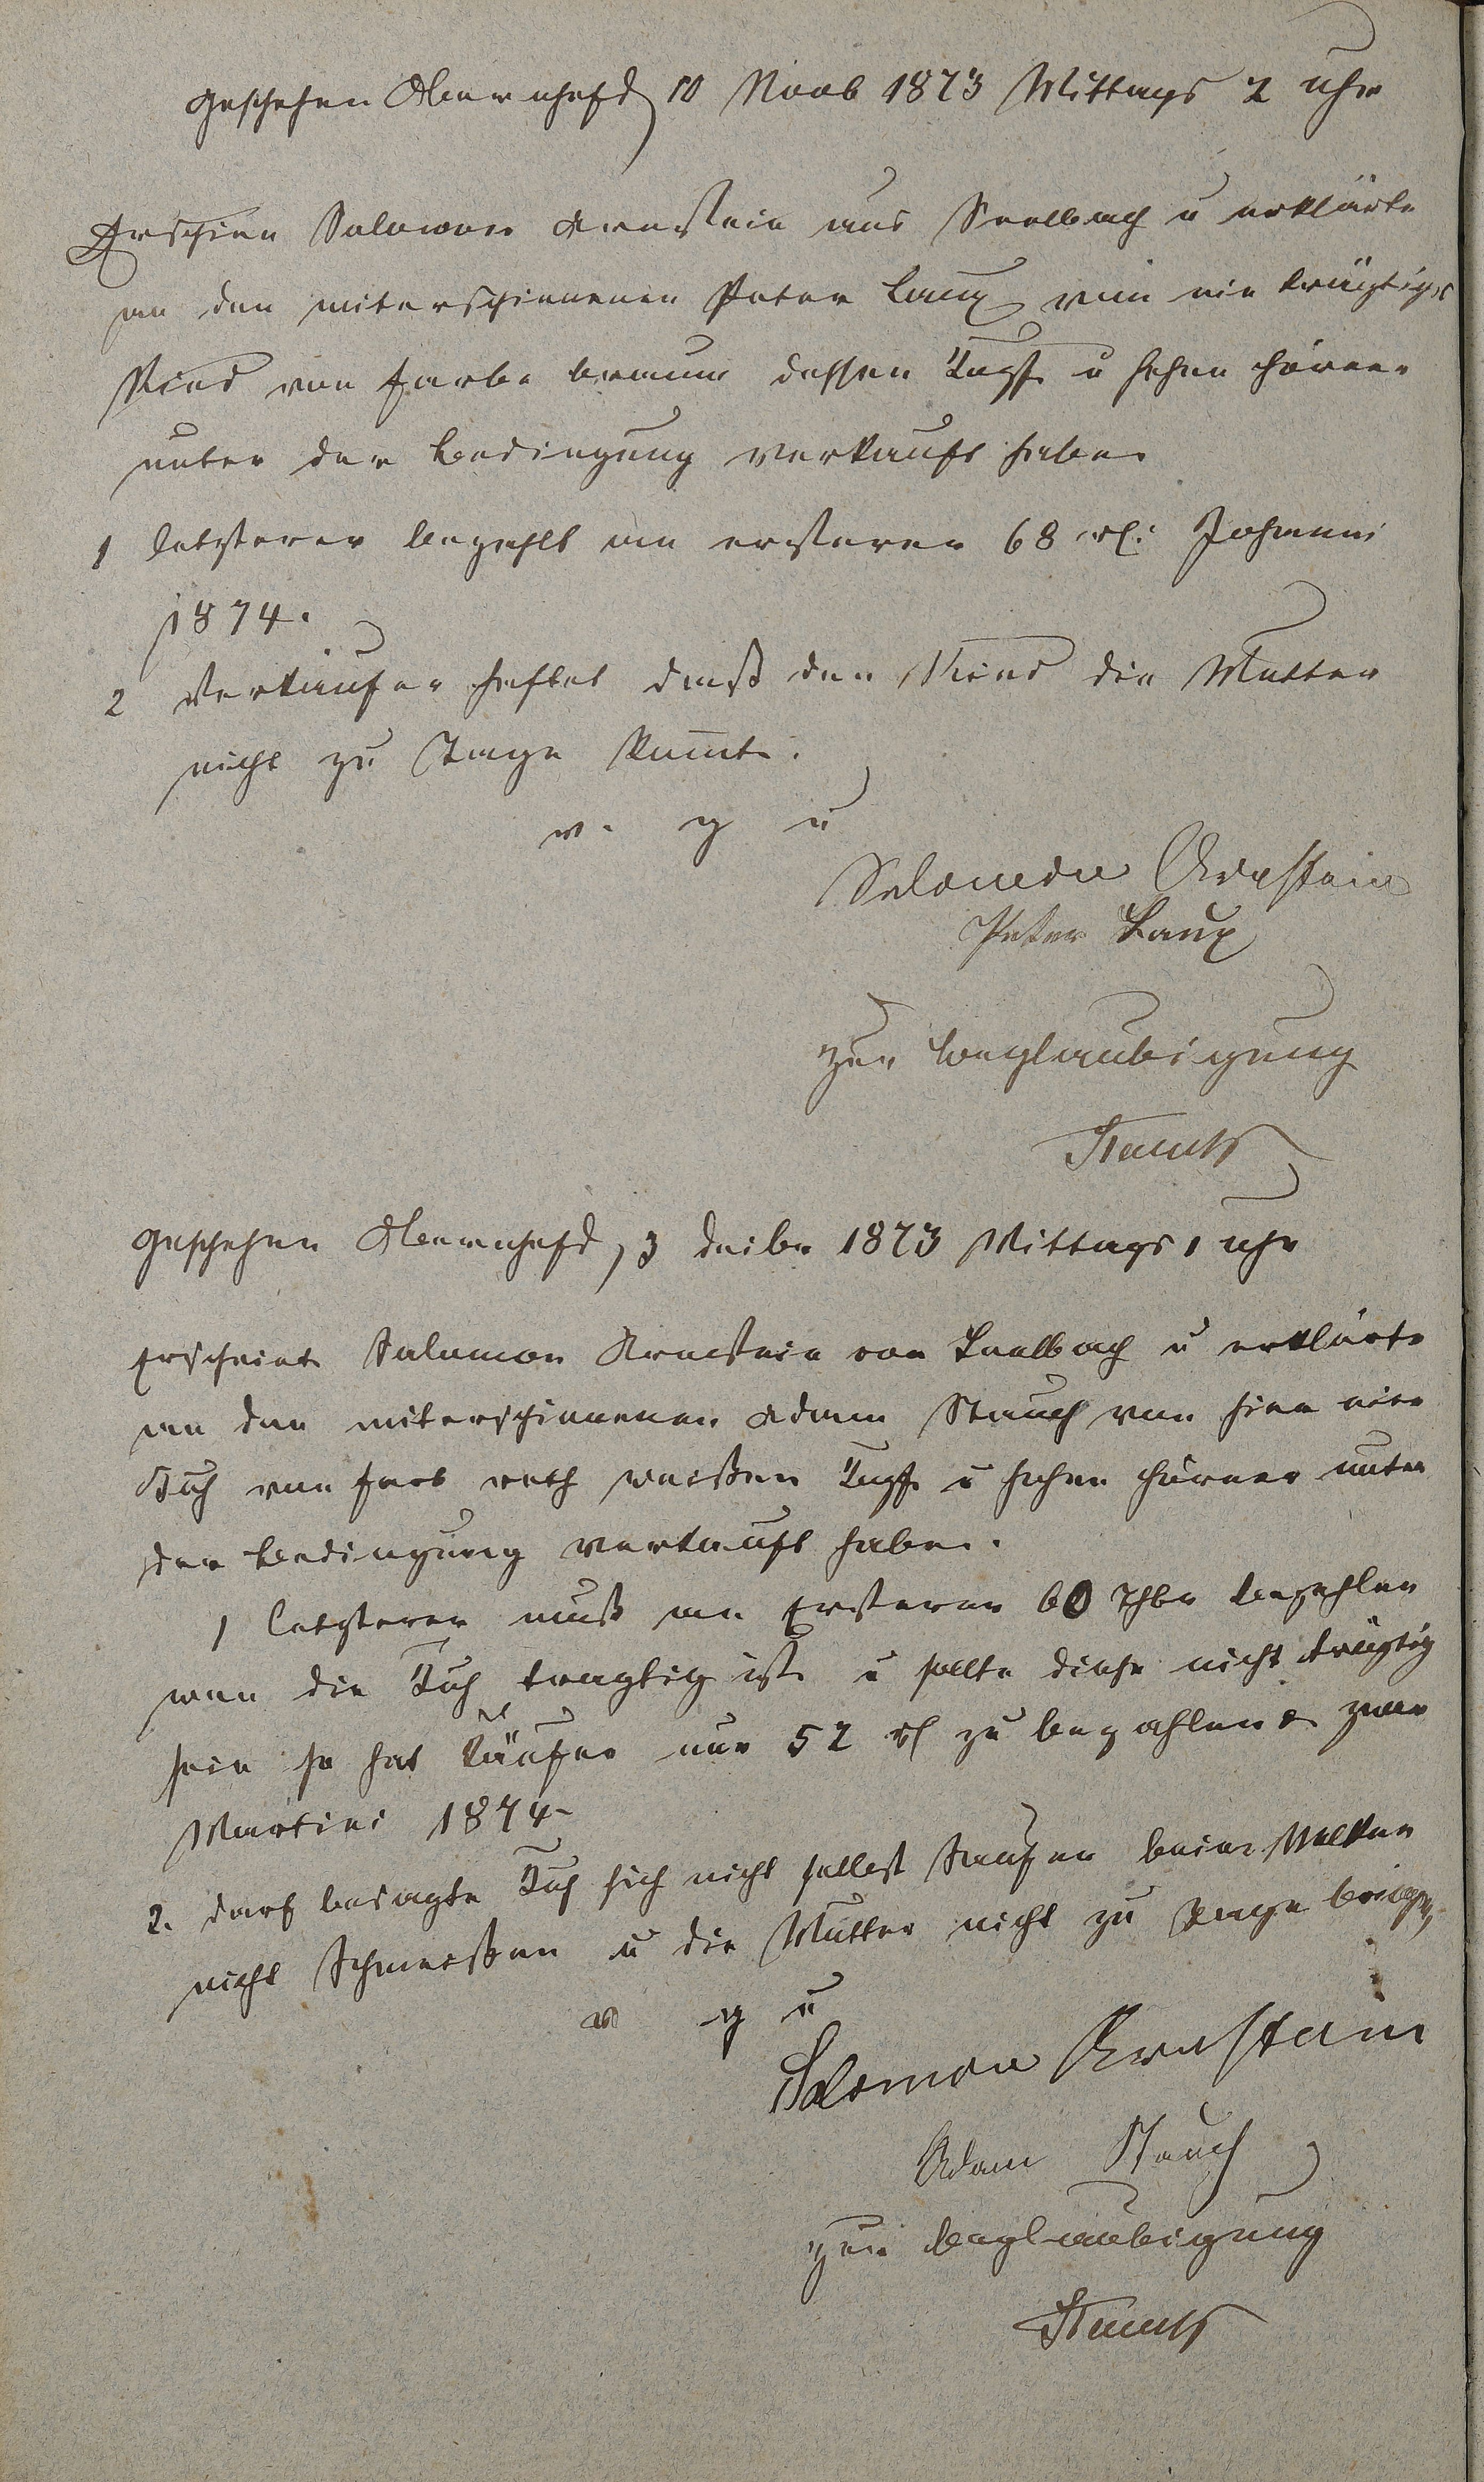 Geschehen Obernhof d 10 Novb 1873 Mittags 2 uhr
Erschien Salomon Arnstein aus Seelbach u erklärte
an den miterschienenen Peter Laux ein trächtiges
Rind von Farbe braun dessen Kopf u hohen Hörner
unter der Bedingung verkauft habe
1 letzterer bezahlt an ersteren 68 rl: Johanni
1874.
2 Verkäufer haftet daß den Rind die Mutter
nicht zu Tage kommt.
v. g u
Salomon Arnstein
Peter Laux
zur Beglaubigung
Geschehen Obernhof d, 3 Decbr 1873 Mittags 1 uhr
Erscheint Salomon Arnstein von Seelbach u erklärte
an den miterschienenen Adam Stauch von hier eine
Kuh von Farb roth weißen Kopf u hohen Hörner unter
der Bedingung verkauft habe.
1 letzterer muß an Ersterer 60 Thlr bezahlen
wen die Kuh trachtig ist u sollte diese nicht trächtig
sein so hat Käufer nur 52 rl zu bezahlen zwar
Martini 1874-
2. darf besagte Kuh sich nicht selbst Saufen beim Melken
nicht Schmeißen u die Mutter nicht zu Tage bringen,
v g u
Salomon Arnstein
Adam Stauch
zur Beglaubigung